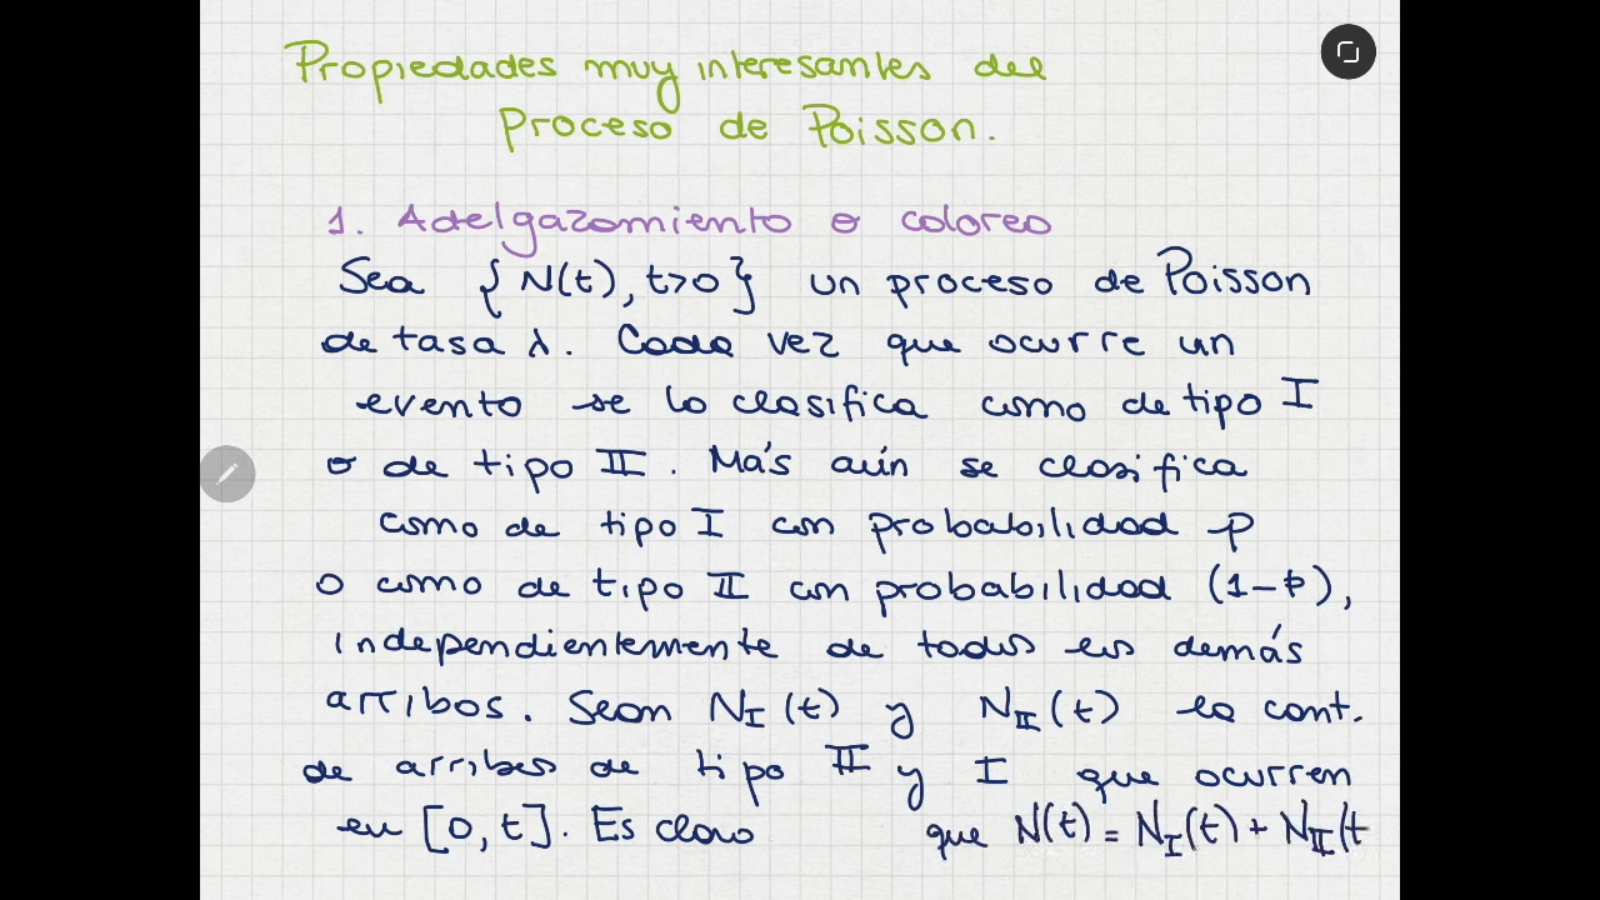 Propiedades muy interesantes del
Proceso de Poisson.
1. Adelgazamiento o coloreo
Sea {N(t), t>0} un proceso de Poisson
de tasa λ. Cada vez que ocurre un
evento se lo clasifica como de tipo I
o de tipo II. Más aún se clasifica
como de tipo I con probabilidad p
o como de tipo II con probabilidad (1-p),
independientemente de todos los demás
arribos. Sean N_I(t) y N_II(t) la cant.
de arribos de tipo II y I que ocurren
en [0, t]. Es claro que N(t) = N_I(t) + N_II(t